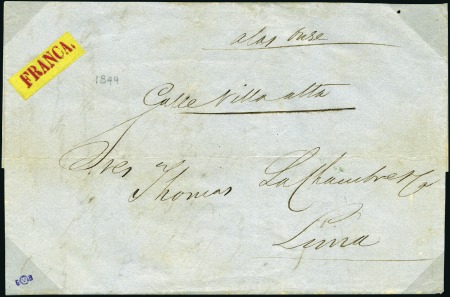 FRANCA.
a las Onze
1849
Calle Villa alta
Sres
Thomas La Chambre & Co
Lima